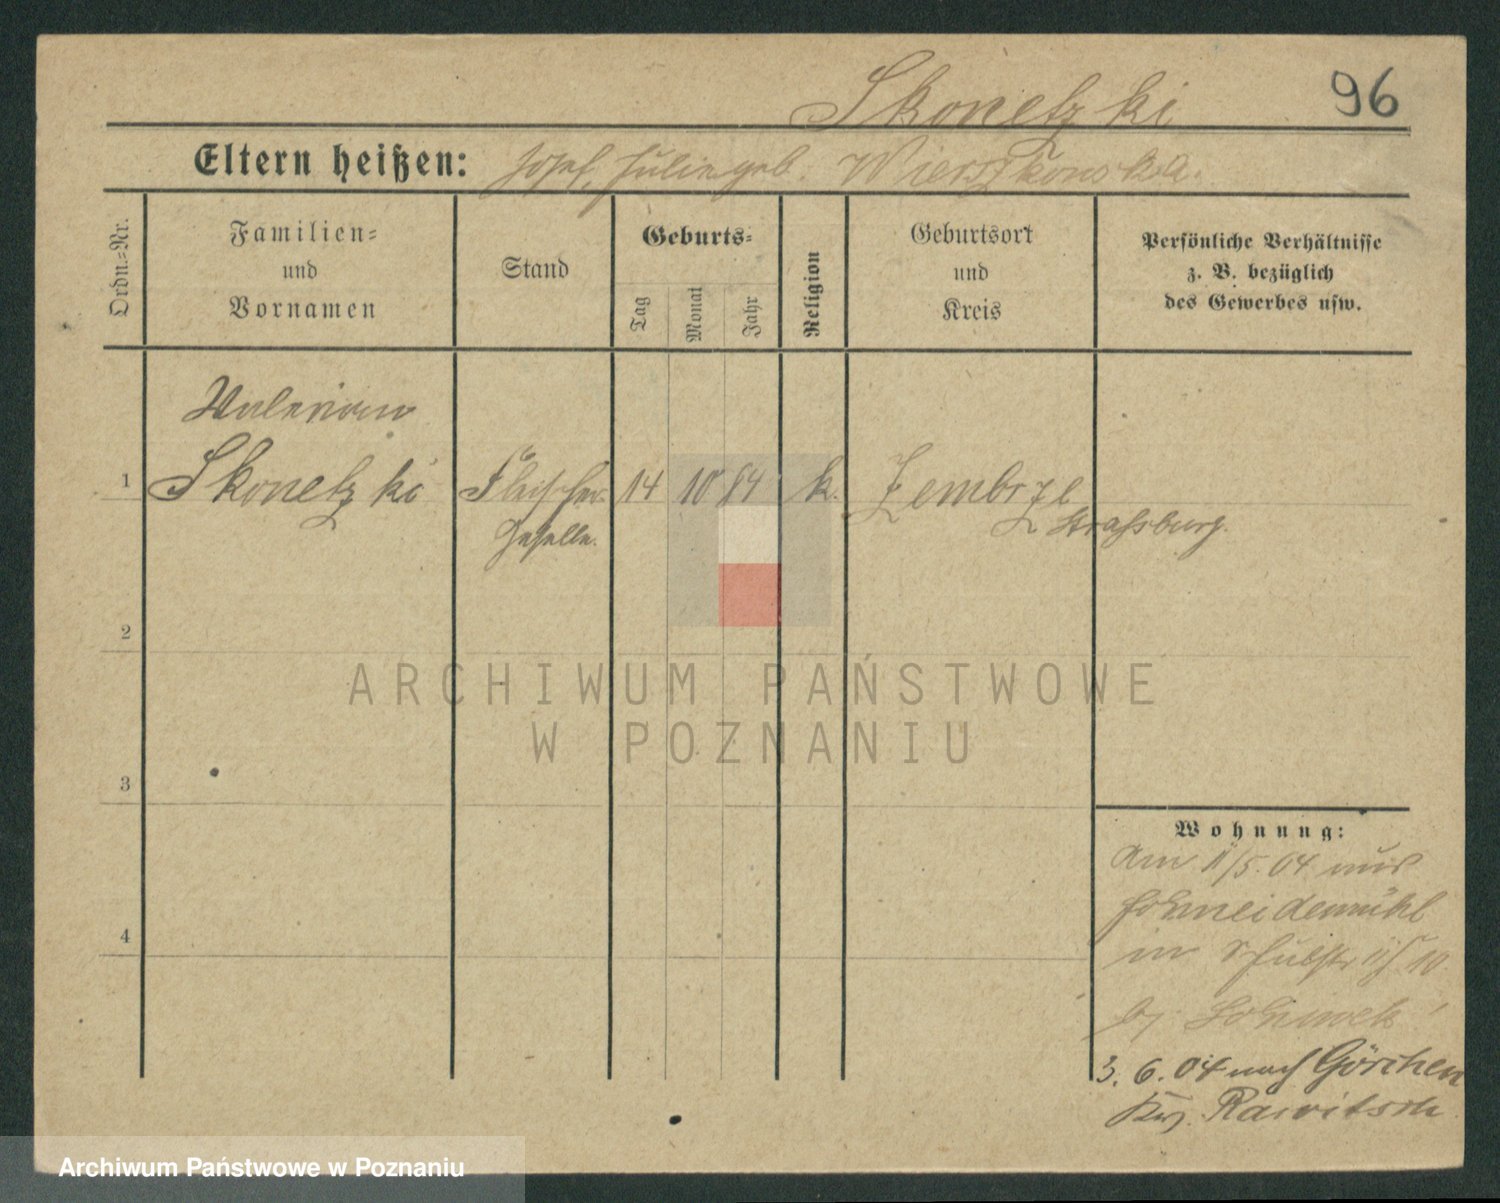 Skonetzki
96
Eltern heißen: Josef, Julie geb. Wierszkowska.
Ordn.-Nr.
Familien-
und
Vornamen
Stand
Geburts-
Tag
Monat
Jahr
Religion
Geburtsort
und
Kreis
Persönliche Verhältnisse
z. B. bezüglich
des Gewerbes usw.
Valerian
1 Skonetzki Fleischer- 14 10 84 k. Zembrze
Geselle. Straßburg.
2
3
4
Wohnung:
Am 11/5.04 aus
Schneidemühl
in Schulstr 10
bei
3. 6. 04 nach Görchen
Krs. Rawitsch
ARCHIWUM PAŃSTWOWE
W POZNANIU
Archiwum Państwowe w Poznaniu